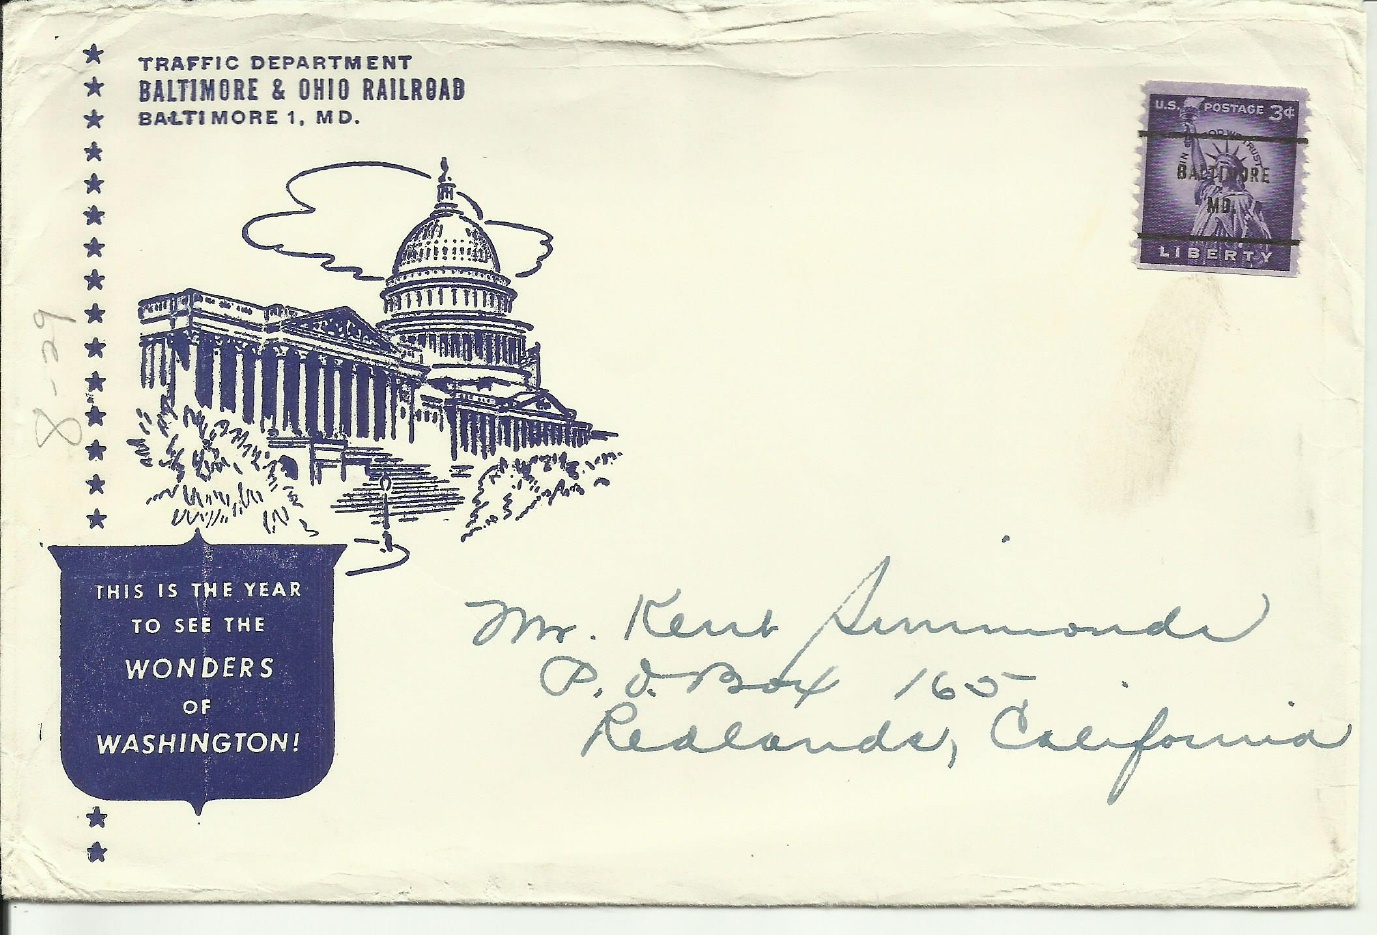 TRAFFIC DEPARTMENT
BALTIMORE & OHIO RAILROAD
BALTIMORE 1, MD.
U.S. POSTAGE 3¢
IN GOD WE TRUST
BALTIMORE
MD.
LIBERTY
8-29
THIS IS THE YEAR
TO SEE THE
WONDERS
OF
WASHINGTON!
Mr. Kent Simmonds
P.O. Box 165
Redlands, California